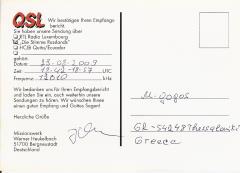 QSL Wir bestätigen Ihren Empfangsbericht
Sie haben unsere Sendung über
RTL Radio Luxembourg
"Die Stimme Russlands"
HCJB Quito/Ecuador
gehört
Datum 2009
Uhrzeit 18:57 UTC
Frequenz kHz
Wir bedanken uns für Ihren Empfangsbericht
und laden Sie ein, auch weiterhin unsere
Sendungen zu hören. Wir wünschen Ihnen
einen guten Empfang und Gottes Segen!
Herzliche Grüße
Missionswerk
Werner Heukelbach
51700 Bergneustadt
Deutschland
GR-54248 Thessaloniki
Greece